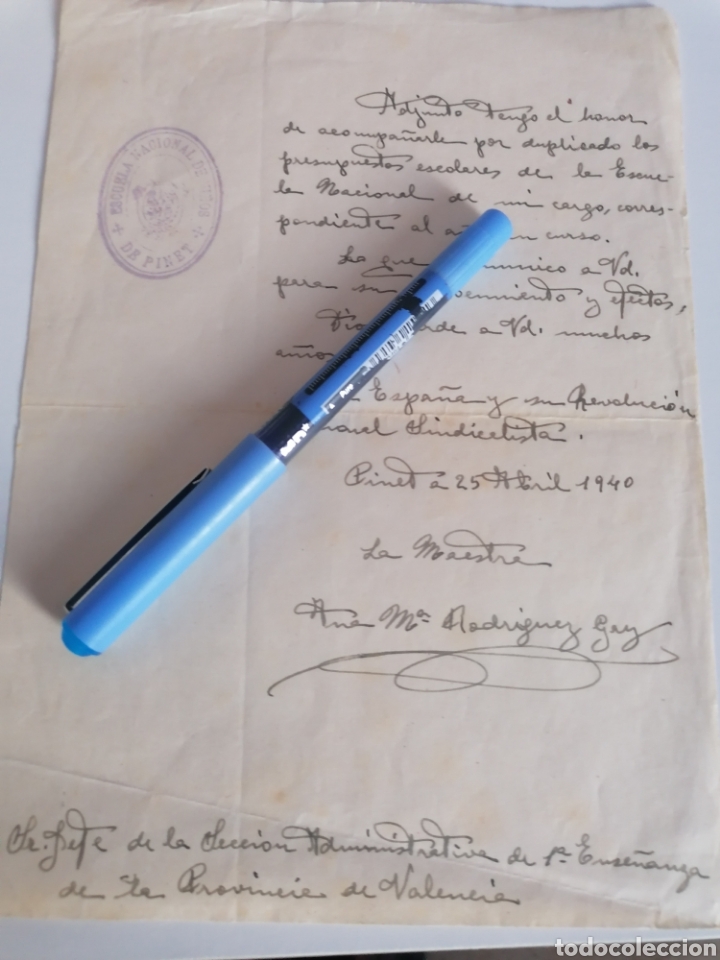 Adjunto tengo el honor
de acompañarle por duplicado los
presupuestos escolares de la Escue-
la Nacional de mi cargo, corres-
pondiente al a en curso.
Lo que munico a Vd.
para su cimiento y efectos,
Dios rde a Vd. muchos
años
España y su Revolución
onal Sindicalista.
Pinet a 25 Abril 1940
La Maestra
Ana Mª Rodriguez Gay
Sr. Jefe de la Sección Administrativa de 1ª Enseñanza
de la Provincia de Valencia
ESCUELA NACIONAL DE
DE PINET
todocoleccion